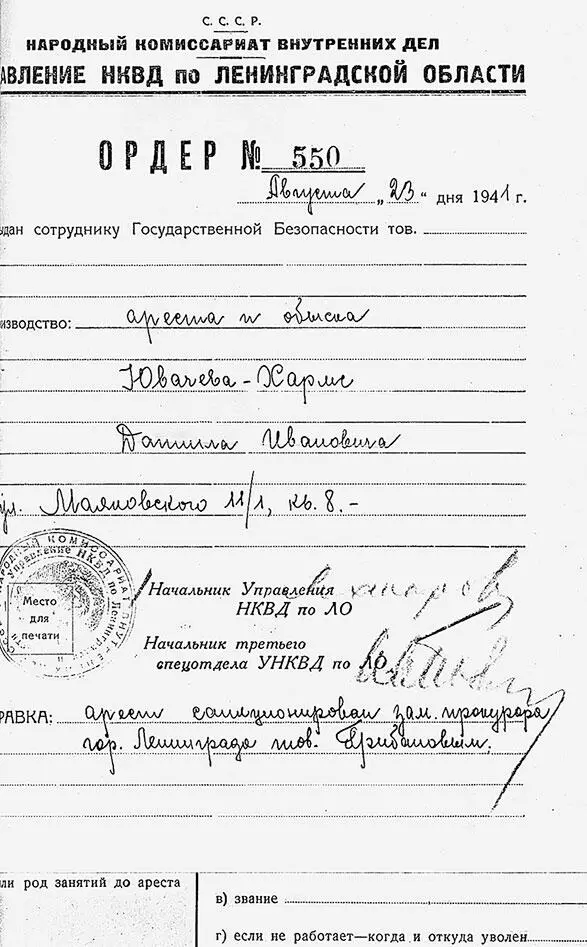 С. С. С. Р.
НАРОДНЫЙ КОМИССАРИАТ ВНУТРЕННИХ ДЕЛ
АВЛЕНИЕ НКВД по ЛЕНИНГРАДСКОЙ ОБЛАСТИ
ОРДЕР № 550
Августа „23“ дня 1941 г.
дан сотруднику Государственной Безопасности тов.
изводство: ареста и обыска
Ювачева-Хармс
Даниила Ивановича
ул. Маяковского 11/1, кв. 8. -
НАРОДНЫЙ КОМИССАРИАТ ВНУТРЕН
Управление НКВД по Ленинград
Место
для
печати
Начальник Управления
НКВД по ЛО
Начальник третьего
спецотдела УНКВД по ЛО
РАВКА: арест санкционирован зам. прокурора
гор. Ленинграда тов. Грибановым.
ли род занятий до ареста
в) звание
г) если не работает—когда и откуда уволен